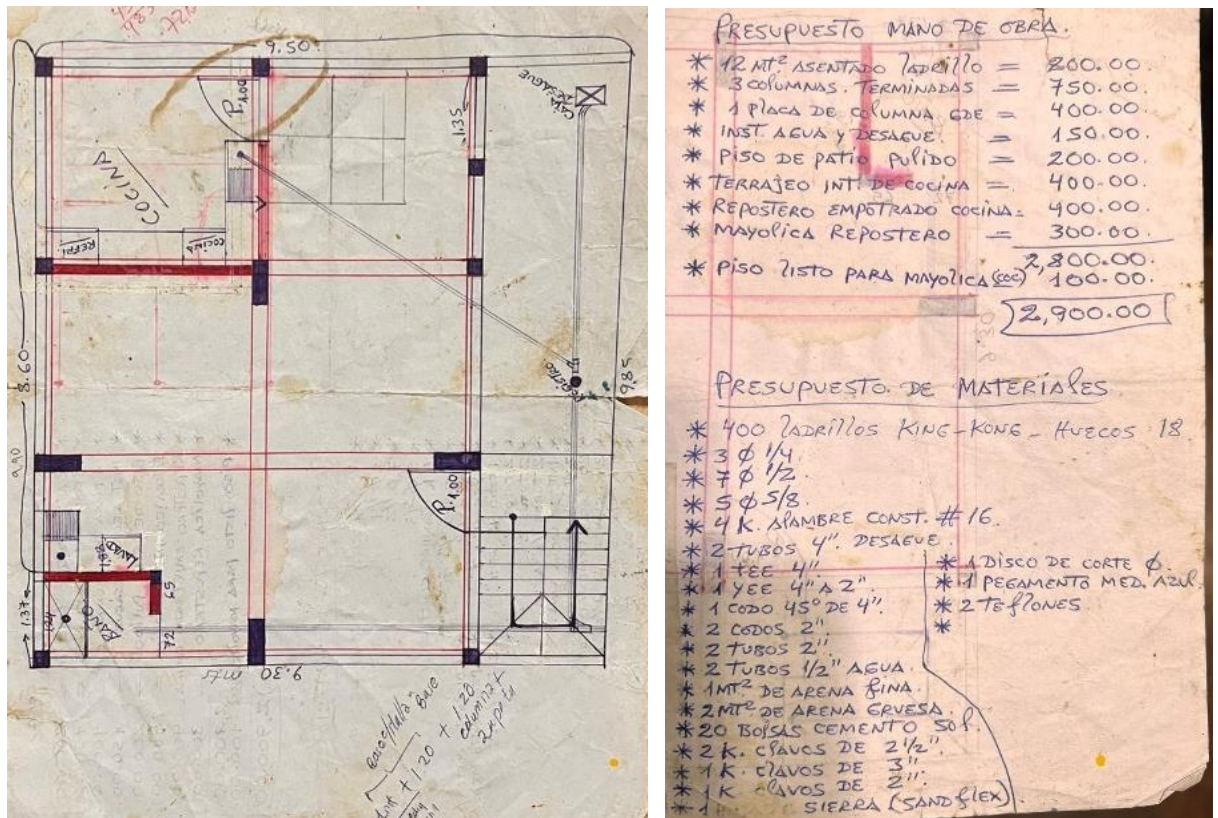 9.50
P. 1.00
1.35
CAJA
DESAGUE
COCINA
REFRI.
COCINA
8.60
9.90
REGISTRO
9.85
P. 1.00
LAVAD.
1.37
BAÑO
65
72
9.30 mts
Base
+ 1.20
columna +
zapata
+ 1.20
PRESUPUESTO MANO DE OBRA.
* 12 MT² ASENTADO LADRILLO = 200.00.
* 3 COLUMNAS. TERMINADAS = 750.00.
* 1 PLACA DE COLUMNA GDE = 400.00.
* INST. AGUA Y DESAGUE. = 150.00.
* PISO DE PATIO PULIDO = 200.00.
* TERRAJEO INT. DE COCINA = 400.00.
* REPOSTERO EMPOTRADO COCINA = 400.00.
* MAYOLICA REPOSTERO = 300.00.
2,800.00.
* PISO LISTO PARA MAYOLICA (COC) 100.00.
2,900.00
PRESUPUESTO DE MATERIALES
* 400 LADRILLOS KING-KONG - HUECOS 18.
* 3 Ø 1/4.
* 7 Ø 1/2.
* 5 Ø 5/8.
* 4 K. ALAMBRE CONST. # 16.
* 2 TUBOS 4". DESAGUE.
* 1 TEE 4"
* 1 YEE 4" A 2"
* 1 CODO 45° DE 4".
* 2 CODOS 2"
* 2 TUBOS 2".
* 2 TUBOS 1/2" AGUA.
* 1 MT² DE ARENA FINA.
* 2 MT² DE ARENA GRUESA.
* 20 BOLSAS CEMENTO SOL.
* 2 K. CLAVOS DE 2 1/2".
* 1 K. CLAVOS DE 3"
* 1 K CLAVOS DE 2".
* 1 SIERRA (SANDFLEX)
* 1 DISCO DE CORTE Ø.
* 1 PEGAMENTO MED. AZUL.
* 2 TEFLONES.
*